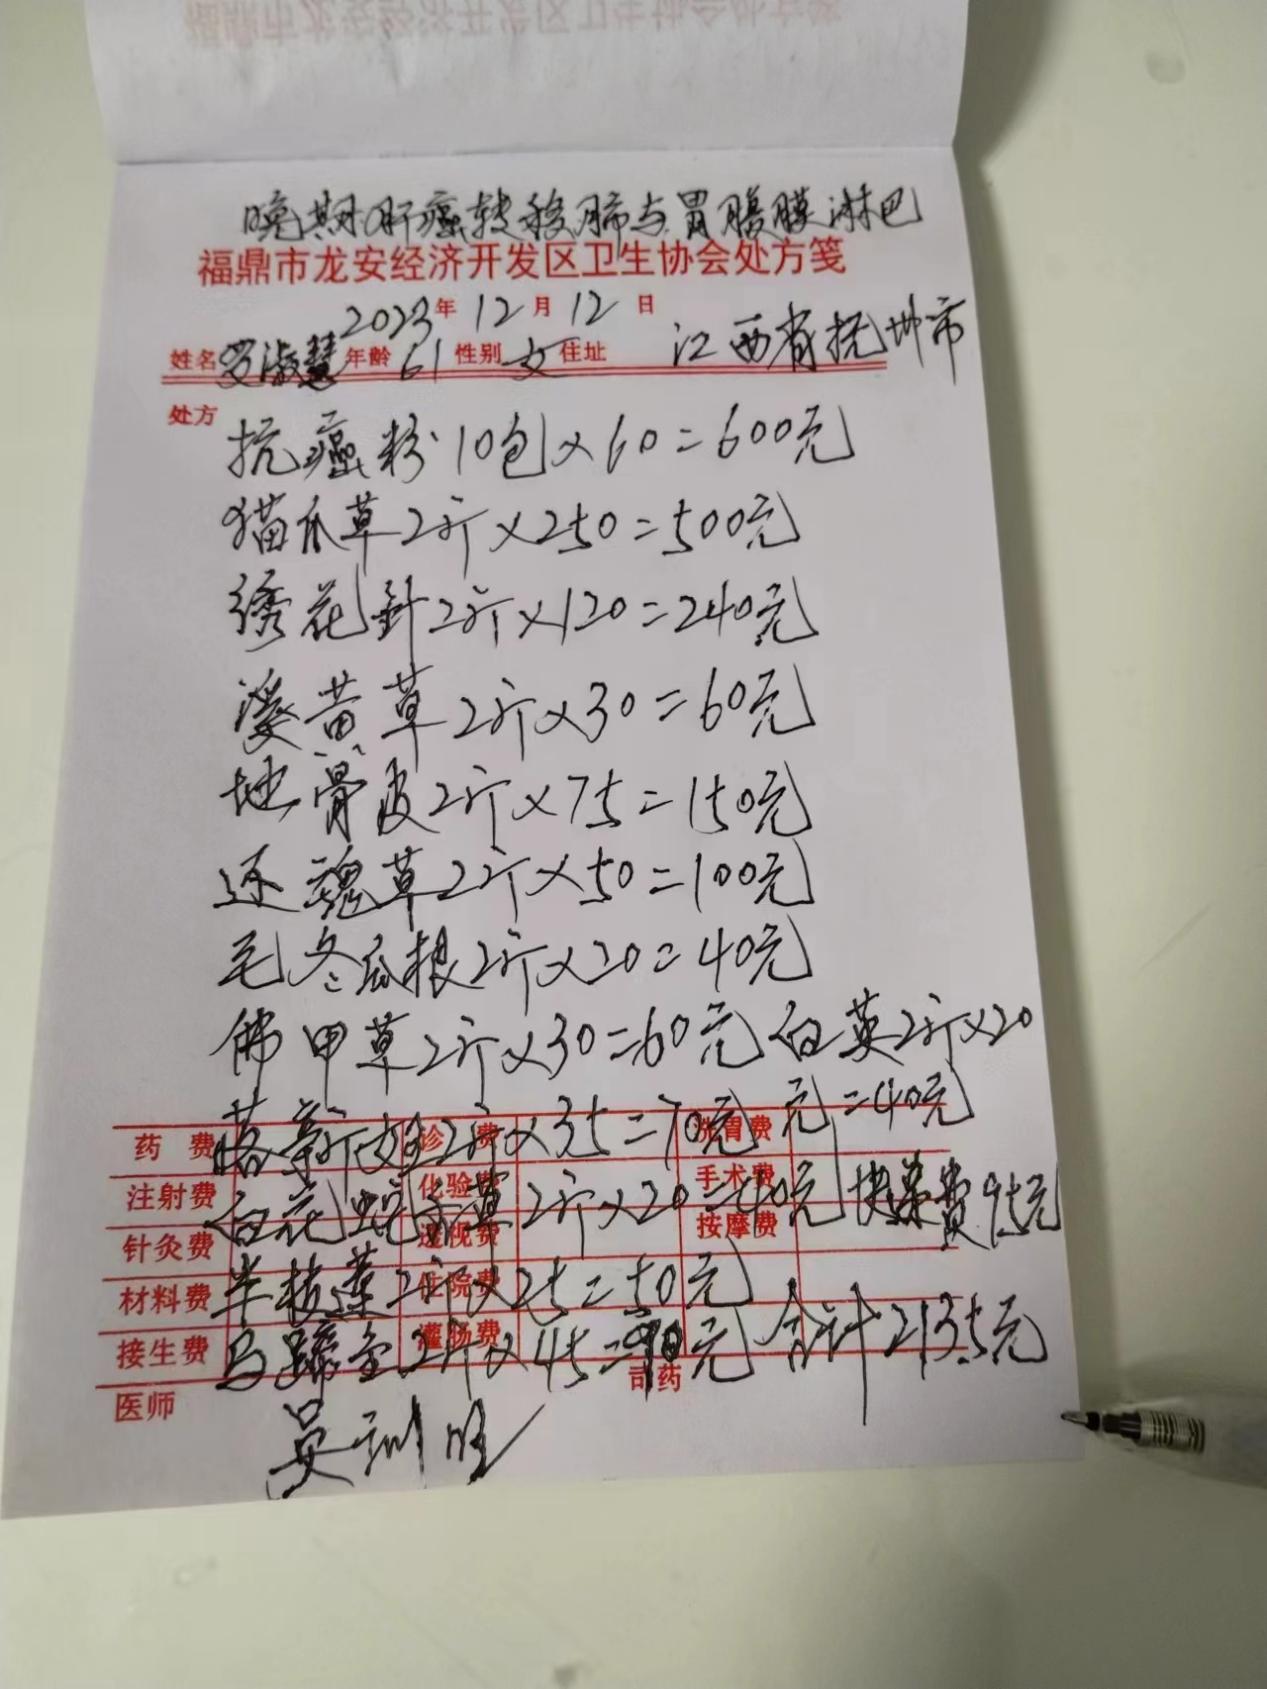 晚期肝癌转移肺与胃腹膜淋巴
福鼎市龙安经济开发区卫生协会处方笺
2023年12月12日
姓名罗淑慧年龄61性别女住址 江西省抚州市
处方
抗癌粉10包×60=600元
猫爪草2斤×250=500元
绣花針2斤×120=240元
溪黄草2斤×30=60元
地骨皮2斤×75=150元
还魂草2斤×50=100元
毛冬瓜根2斤×20=40元
佛甲草2斤×30=60元 白英2斤×20
元=40元
落新妇2斤×35=70元
药费 诊费 洗胃费
白花蛇舌草2斤×20=40元 快递费95元
注射费 化验费 手术费
针灸费 透视费 按摩费
半枝莲2斤×25=50元
材料费 住院费
马蹄金2斤×45=90元 合计2135元
接生费 灌肠费
医师 吴训旺 司药